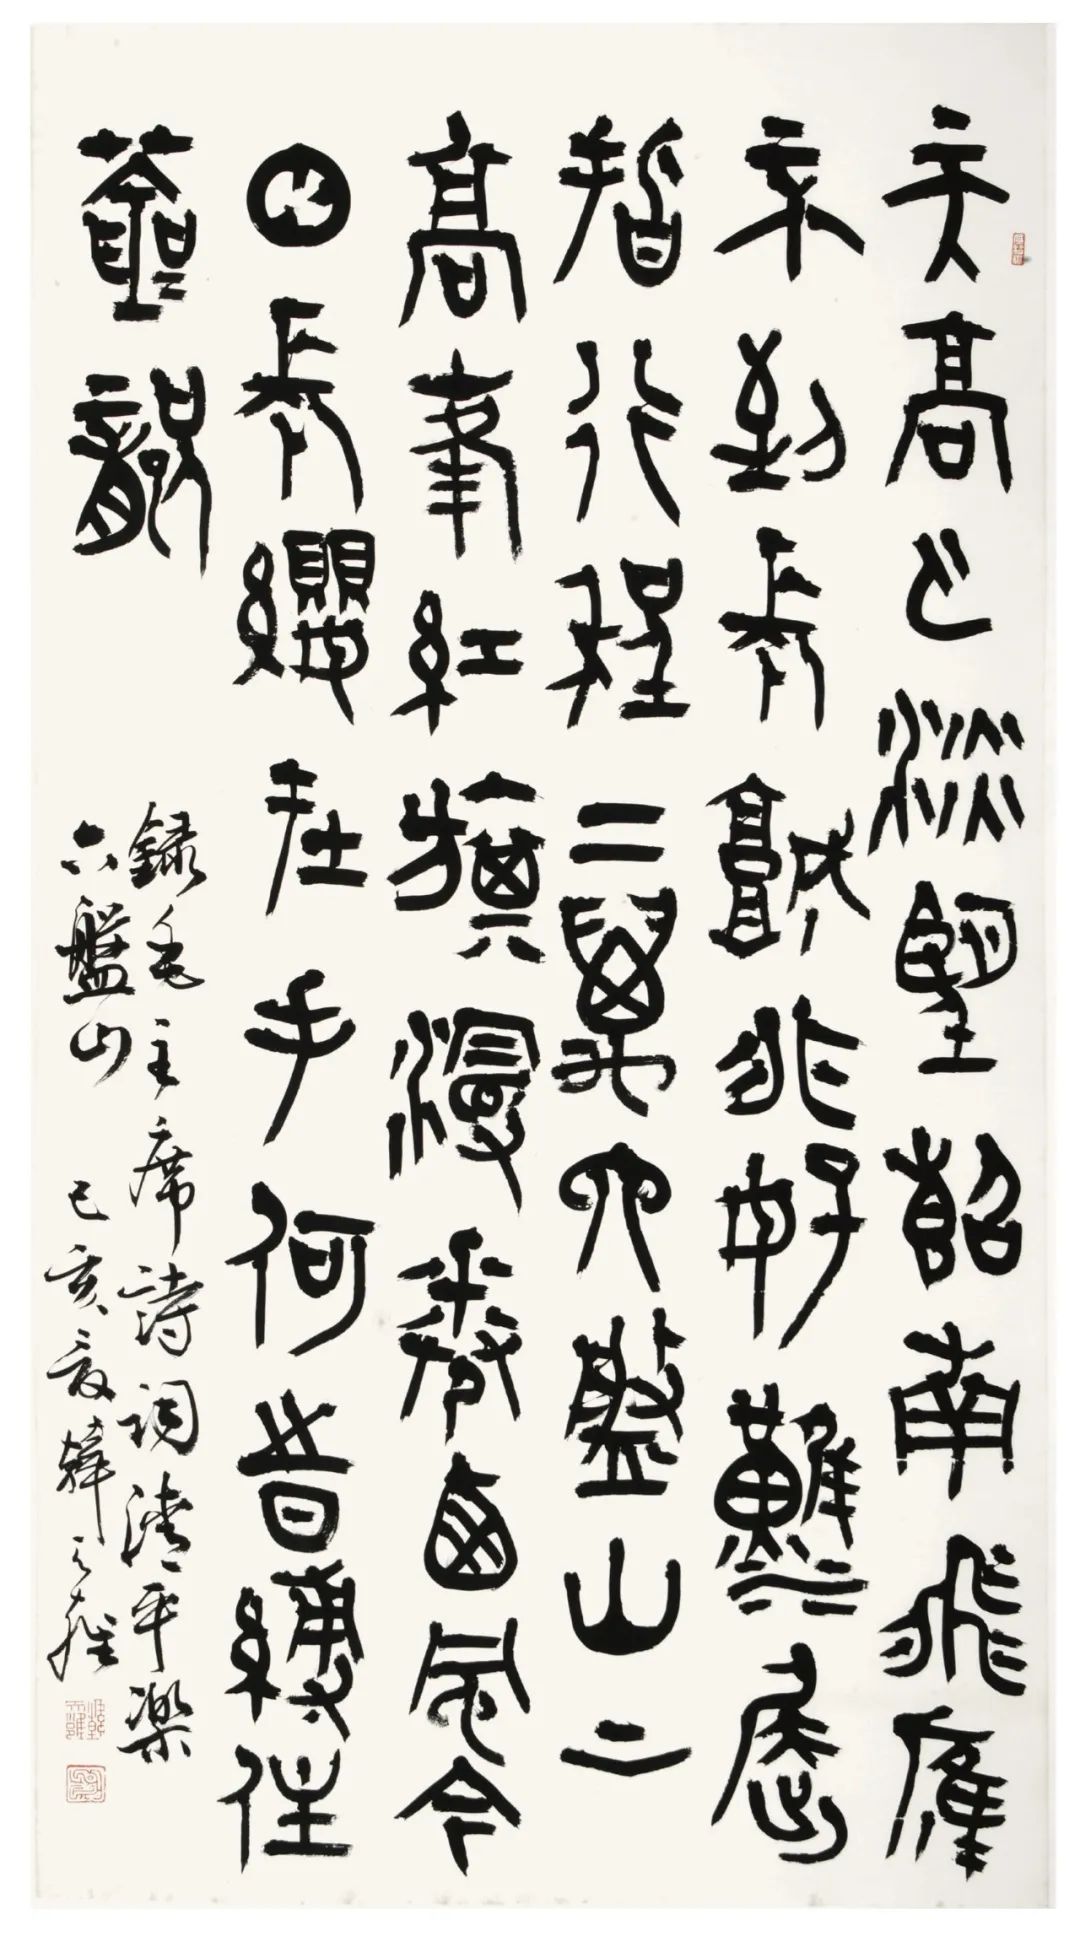 天高云淡望斷南飛雁
不到長城非好漢屈
指行程二萬六盤山上
高峯紅旗漫卷西風今
日長纓在手何時縛住
蒼龍
錄毛主席詩詞清平樂
六盤山 己亥夏韓天雍